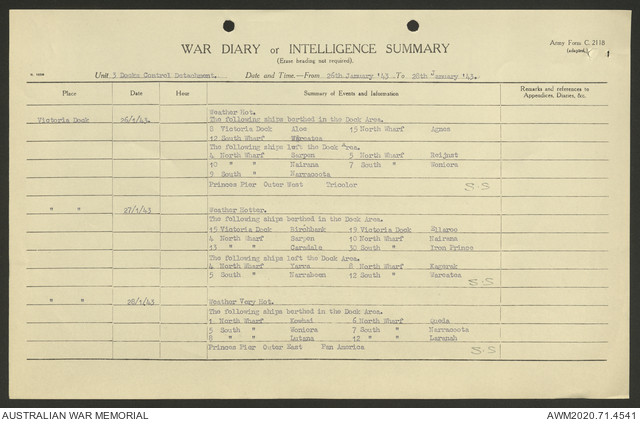 Army Form C. 2118
(adapted)
WAR DIARY or INTELLIGENCE SUMMARY
(Erase heading not required).
Unit 3 Docks Control Detachment. Date and Time.—From 26th January '43. To 28th January '43.
Place Date Hour Summary of Events and Information Remarks and references to Appendices, Diaries, &c.
Weather Hot.
Victoria Dock 26/1/43. The following ships berthed in the Dock Area.
8 Victoria Dock Aloe 15 North Wharf Agnes
12 South Wharf Wareatea
The following ships left the Dock Area.
4 North Wharf Sarpen 5 North Wharf Reijnst
10 " " Nairana 7 South " Woniora
9 South " Narracoota
Princes Pier Outer West Tricolor S.S
" " 27/1/43 Weather Hotter.
The following ships berthed in the Dock Area.
15 Victoria Dock 19 Victoria Dock Ellaroo
4 North Wharf Sarpen 10 North Wharf Nairana
13 " " Caradale 30 South " Iron Prince
The following ships left the Dock Area.
4 North Wharf Yarra 8 North Wharf
5 South " Narrabeen 12 South " Wareatea
S.S
" " 28/1/43 Weather Very Hot.
The following ships berthed in the Dock Area.
1 North Wharf Kowhai 6 North Wharf
5 South " Woniora 7 South " Narracoota
8 " " Lutana 12 " " Laranah
Princes Pier Outer West Pan America S.S
AUSTRALIAN WAR MEMORIAL AWM2020.71.4541